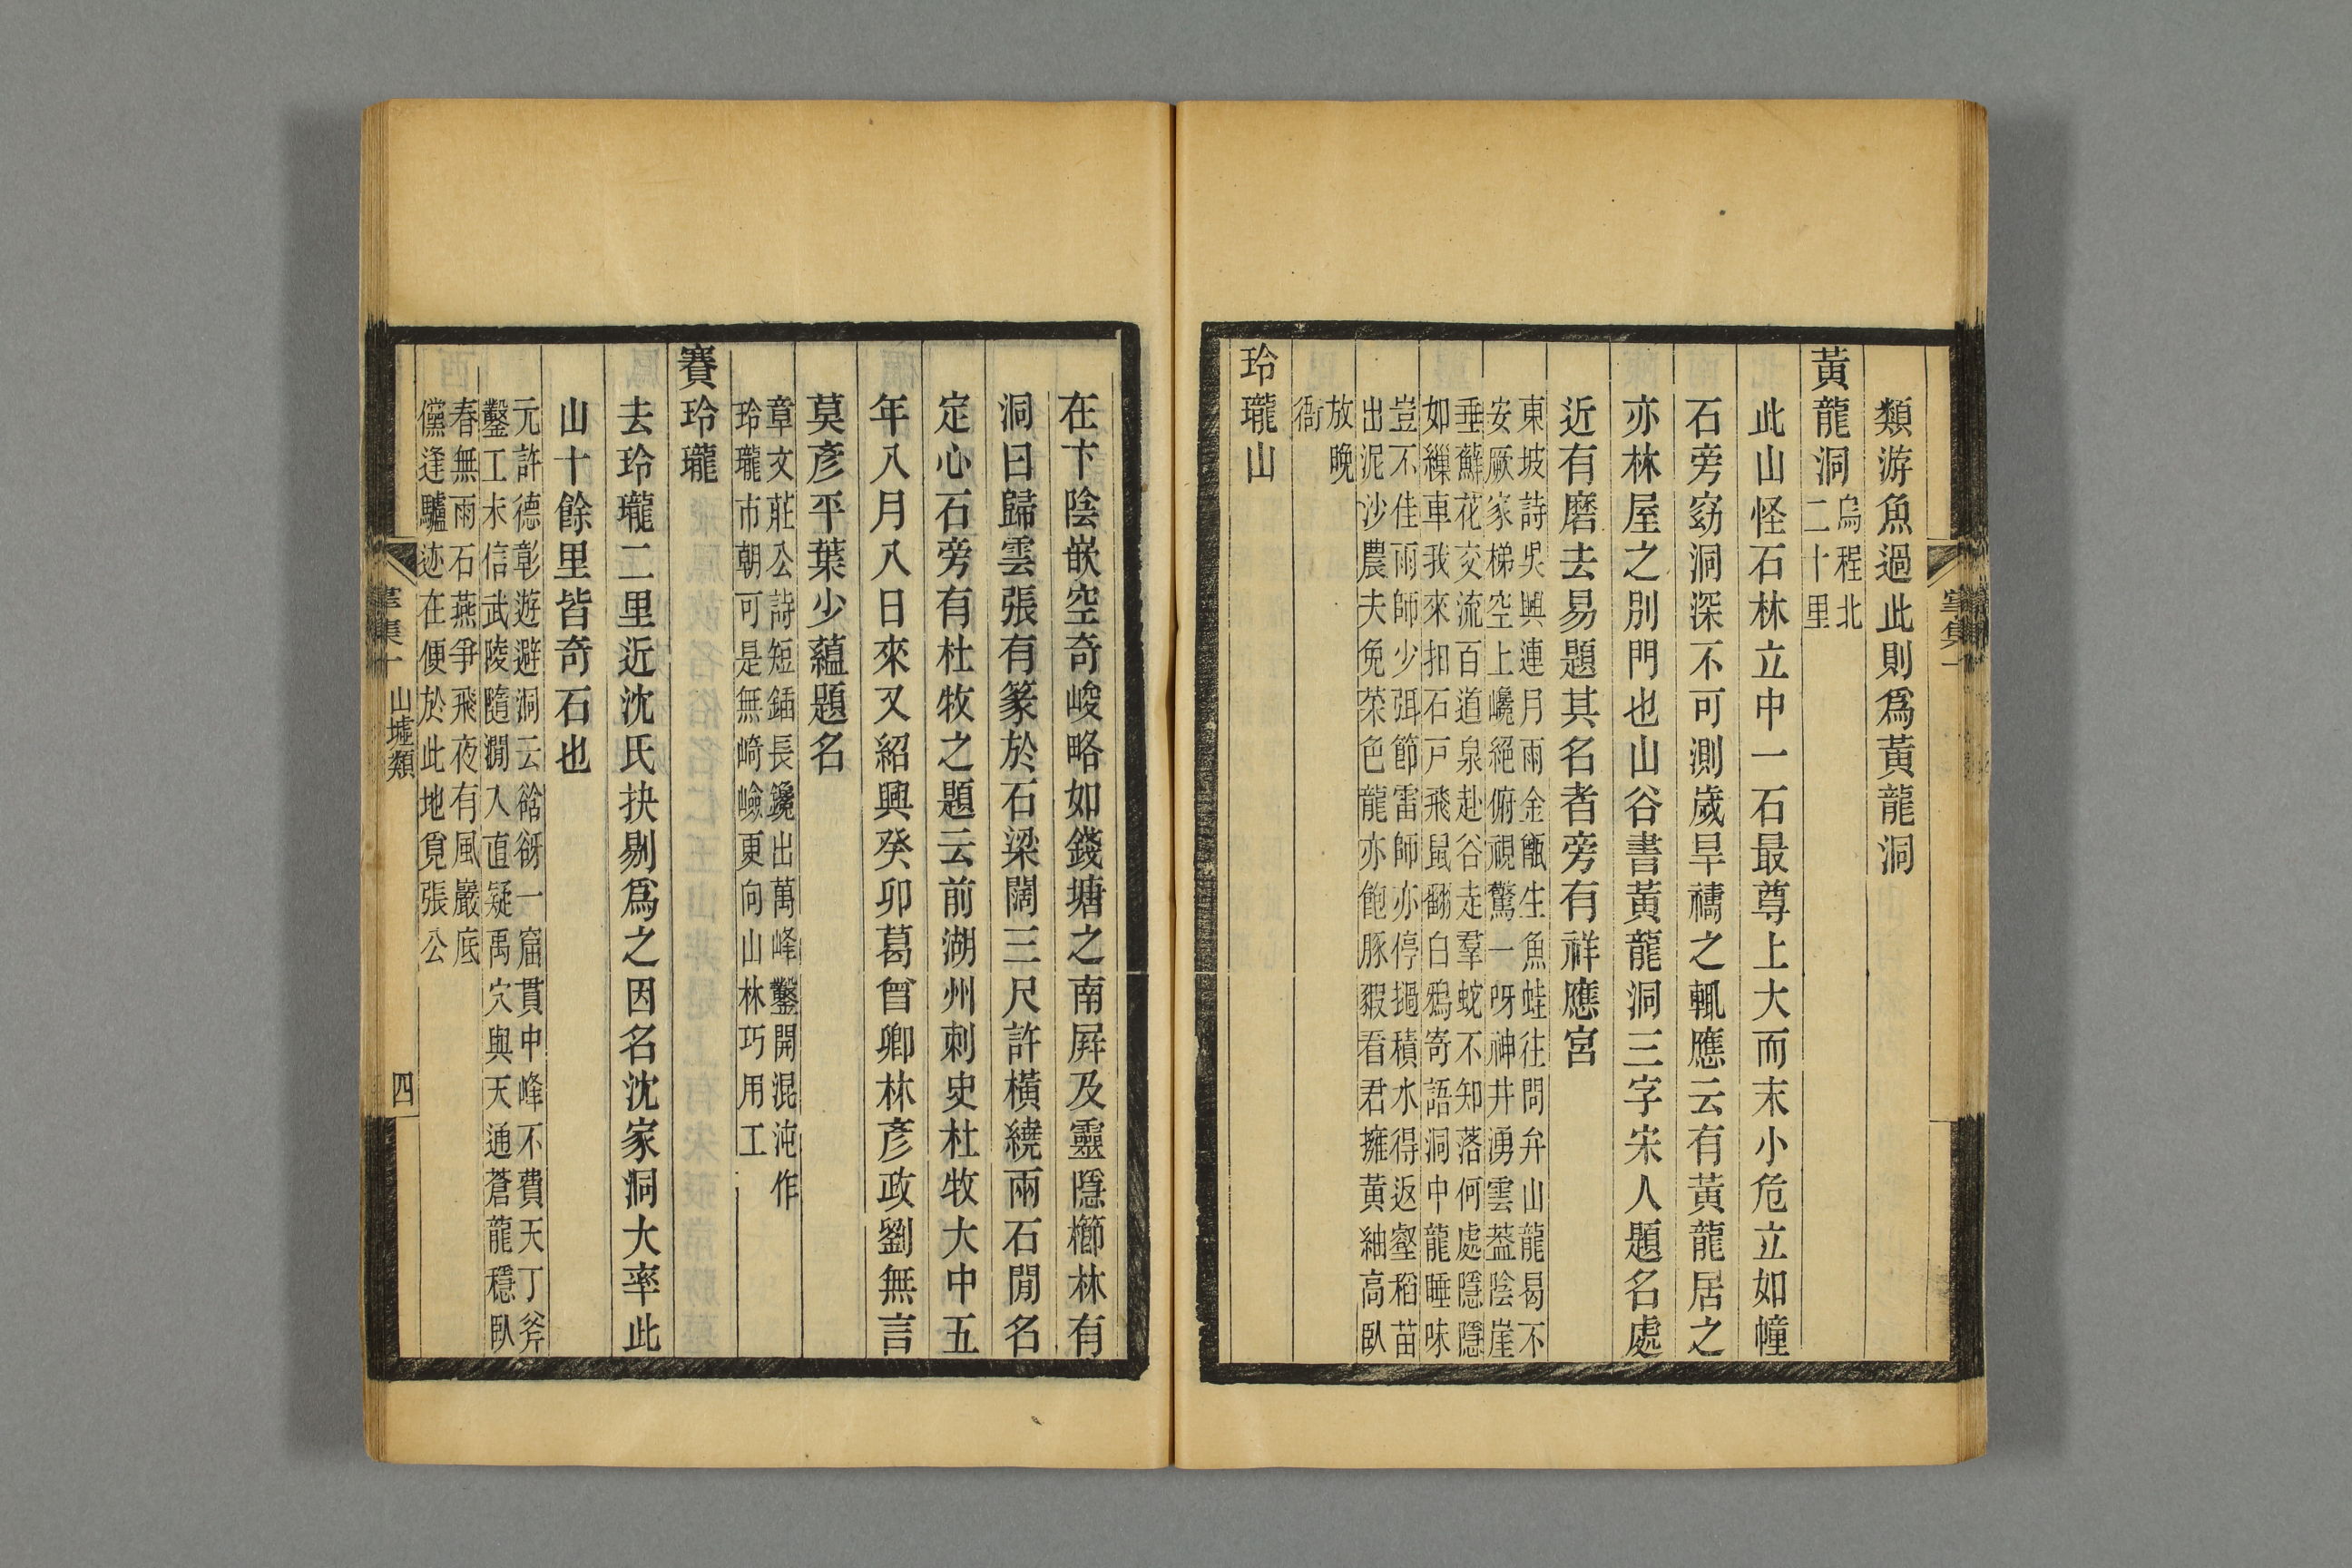 類游魚過此則爲黃龍洞
黃龍洞
烏程北
二十里
此山怪石林立中一石最尊上大而末小危立如幢
石旁窈洞深不可測歲旱禱之輒應云有黃龍居之
亦林屋之別門也山谷書黃龍洞三字宋人題名處
近有磨去易題其名者旁有祥應宮
東坡詩吳興連月雨金甑生魚蛙往問弁山龍曷不
安厥家梯空上巉絕俯視驚一呀神井湧雲葢陰崖
垂蘚花交流百道泉赴谷走羣蛇不知落何處隱隱
如繅車我來扣石戸飛鼠翻白鴉寄語洞中龍睡味
豈不佳雨師少弭節雷師亦停撾積水得返壑稻苗
出泥沙農夫免菜色龍亦飽豚豭看君擁黃紬高臥
放晚
衙
玲瓏山
在卞陰嵌空奇峻略如錢塘之南屛及靈隱櫛林有
洞曰歸雲張有篆於石梁闊三尺許橫繞兩石閒名
定心石旁有杜牧之題云前湖州刺史杜牧大中五
年八月八日來又紹興癸卯葛曾卿林彥政劉無言
莫彥平葉少蘊題名
章文莊公詩短鍤長鑱出萬峰鑿開混沌作
玲瓏市朝可是無崎嶮更向山林巧用工
賽玲瓏
去玲瓏二里近沈氏抉剔爲之因名沈家洞大率此
山十餘里皆奇石也
元許德彰遊避洞云谽谺一窟貫中峰不費天丁斧
鑿工未信武陵隨澗入直疑禹穴與天通蒼龍穩臥
春無雨石燕爭飛夜有風巖底
儻逢驢迹在便於此地覓張公
掌集一
山墟類
四